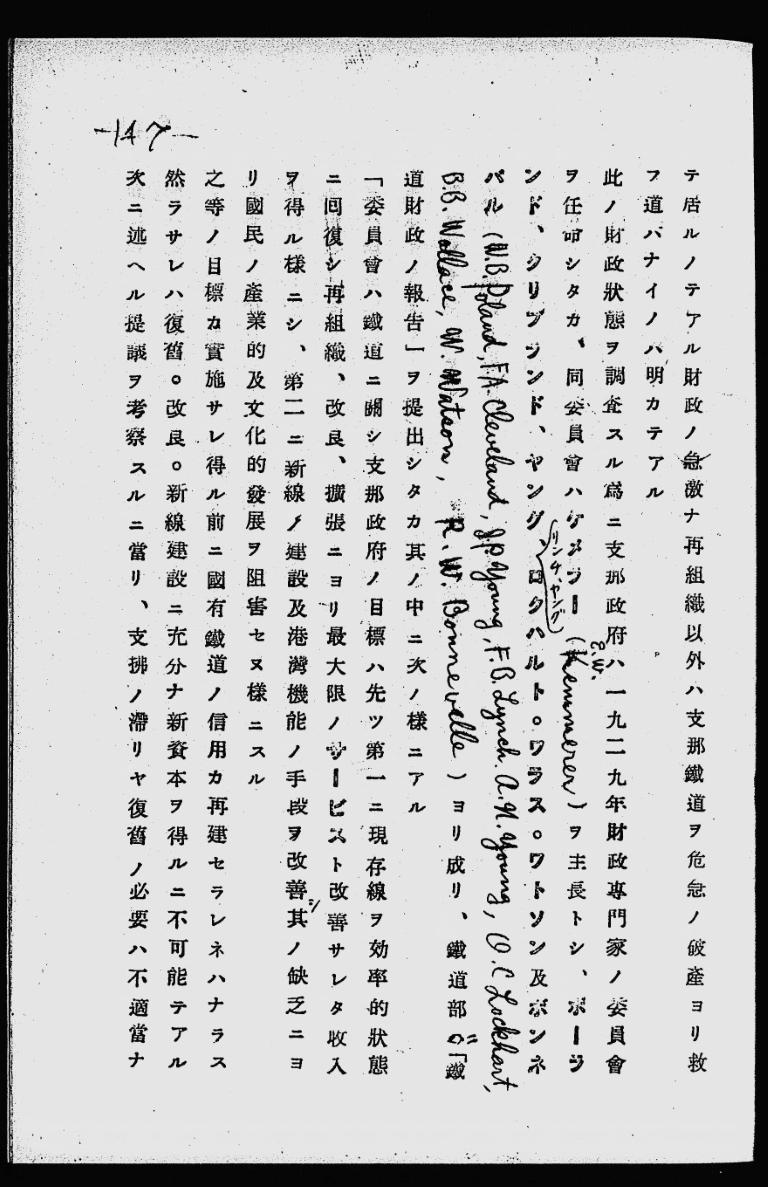 -147-
テ居ルノテアル財政ノ急激ナ再組織以外ハ支那鐵道ヲ危急ノ破產ヨリ救
フ道バナイノハ明カテアル
此ノ財政狀態ヲ調査スル爲ニ支那政府ハ一九二九年財政專門家ノ委員會
ヲ任命シタカ、同委員會ハケメラー(E.W. Kemmerer)ヲ主長トシ、ポーラ
ンド、クリブランド、ヤング、リンチ、ヤング、ロクハルト。ワラス。ワトソン及ボンネ
バル(W.B. Poland, F.A. Cleveland, J.P. Young, F.B. Lynch. A.N. Young, O.C Lockhart,
B.B. Wallace, W. Watson, R.W. Bonnevalle)ヨリ成リ、鐵道部ハ「鐵
道財政ノ報告」ヲ提出シタカ其ノ中ニ次ノ樣ニアル
「委員會ハ鐵道ニ關シ支那政府ノ目標ハ先ツ第一ニ現存線ヲ効率的狀態
ニ回復シ再組織、改良、擴張ニヨリ最大限ノサービスト改善サレタ收入
ヲ得ル樣ニシ、第二ニ新線ノ建設及港灣機能ノ手段ヲ改善シ其ノ缺乏ニヨ
リ國民ノ產業的及文化的發展ヲ阻害セヌ樣ニスル
之等ノ目標カ實施サレ得ル前ニ國有鐵道ノ信用カ再建セラレネハナラス
然ラサレハ復舊。改良。新線建設ニ充分ナ新資本ヲ得ルニ不可能テアル
次ニ述ヘル提議ヲ考察スルニ當リ、支拂ノ滯リヤ復舊ノ必要ハ不適當ナ